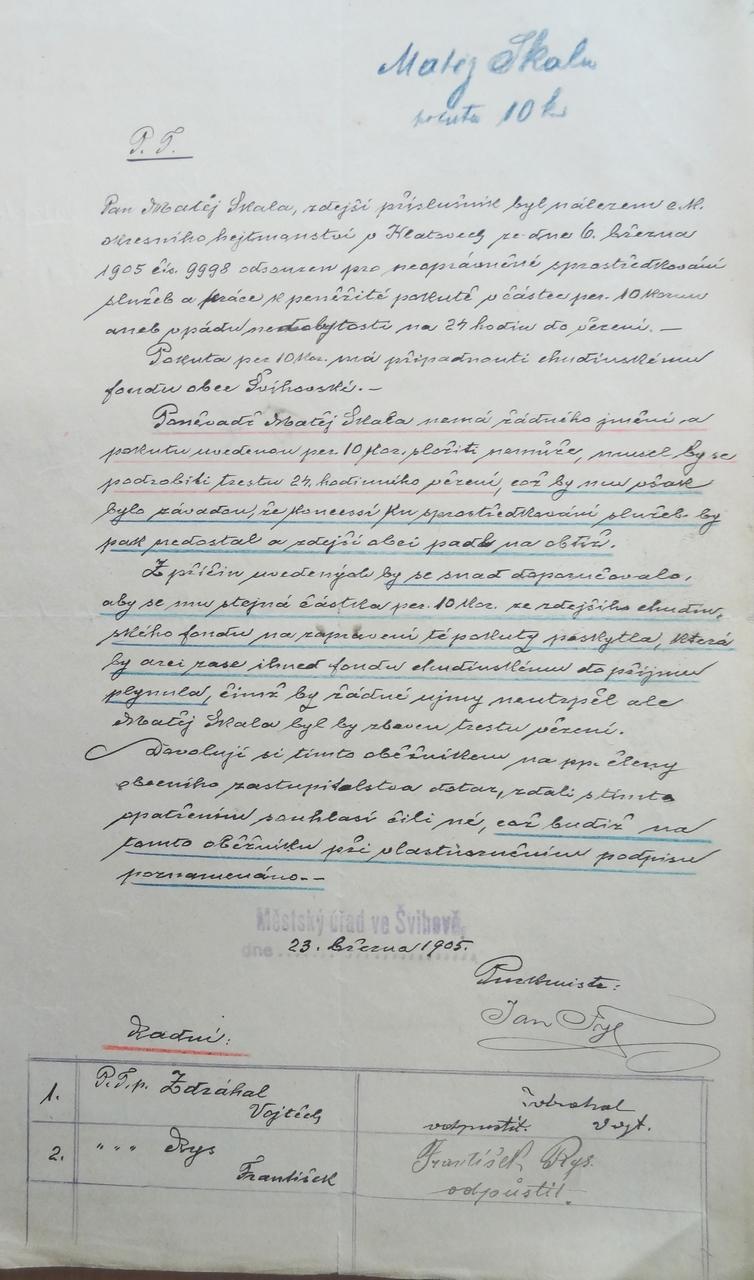 Matěj Skala
pokuta 10 k
P. T.
Pan Matěj Skala, zdejší příslušník byl nálezem c. k.
okresního hejtmanství v Klatovech ze dne 6. března
1905 čís. 9998 odsouzen pro neoprávněné sprostředkování
služeb a práce k peněžité pokutě v částce per. 10 korun
aneb v pádu nedobytosti na 24 hodin do vězení. —
Pokuta per 10 Kor. má připadnouti chudinskému
fondu obce Švihovské. —
Poněvadž Matěj Skala nemá žádného jmění a
pokutu uvedenou per. 10 Kor. složiti nemůže, musel by se
podrobiti trestu 24. hodinného vězení, což by mu však
bylo závadou, že koncessí ku sprostředkování služeb by
pak nedostal a zdejší obci padl na obtíž.
Z příčin uvedených by se snad doporučovalo,
aby se mu stejná částka per. 10 Kor. ze zdejšího chudin-
ského fondu na zapravení té pokuty poskytla, která
by arci zase ihned fondu chudinskému do příjmu
plynula, čímž by žádné ujmy neutrpěl ale
Matěj Skala byl by zbaven trestu vězení.
Dovoluji si tímto oběžníkem na pp. členy
obecního zastupitelstva dotaz, zdali s tímto
opatřením souhlasí čili né, což budiž na
tomto oběžníku při vlastnoručním podpisu
poznamenáno. —
Městský úřad ve Švihově,
dne 23. března 1905.
Purkmistr:
Jan
Radní:
1. P. T. p. Zdráhal
Vojtěch
Zdráhal
odpustit. Vojt.
2. " " " Rys
František
František Rys.
odpůstit.